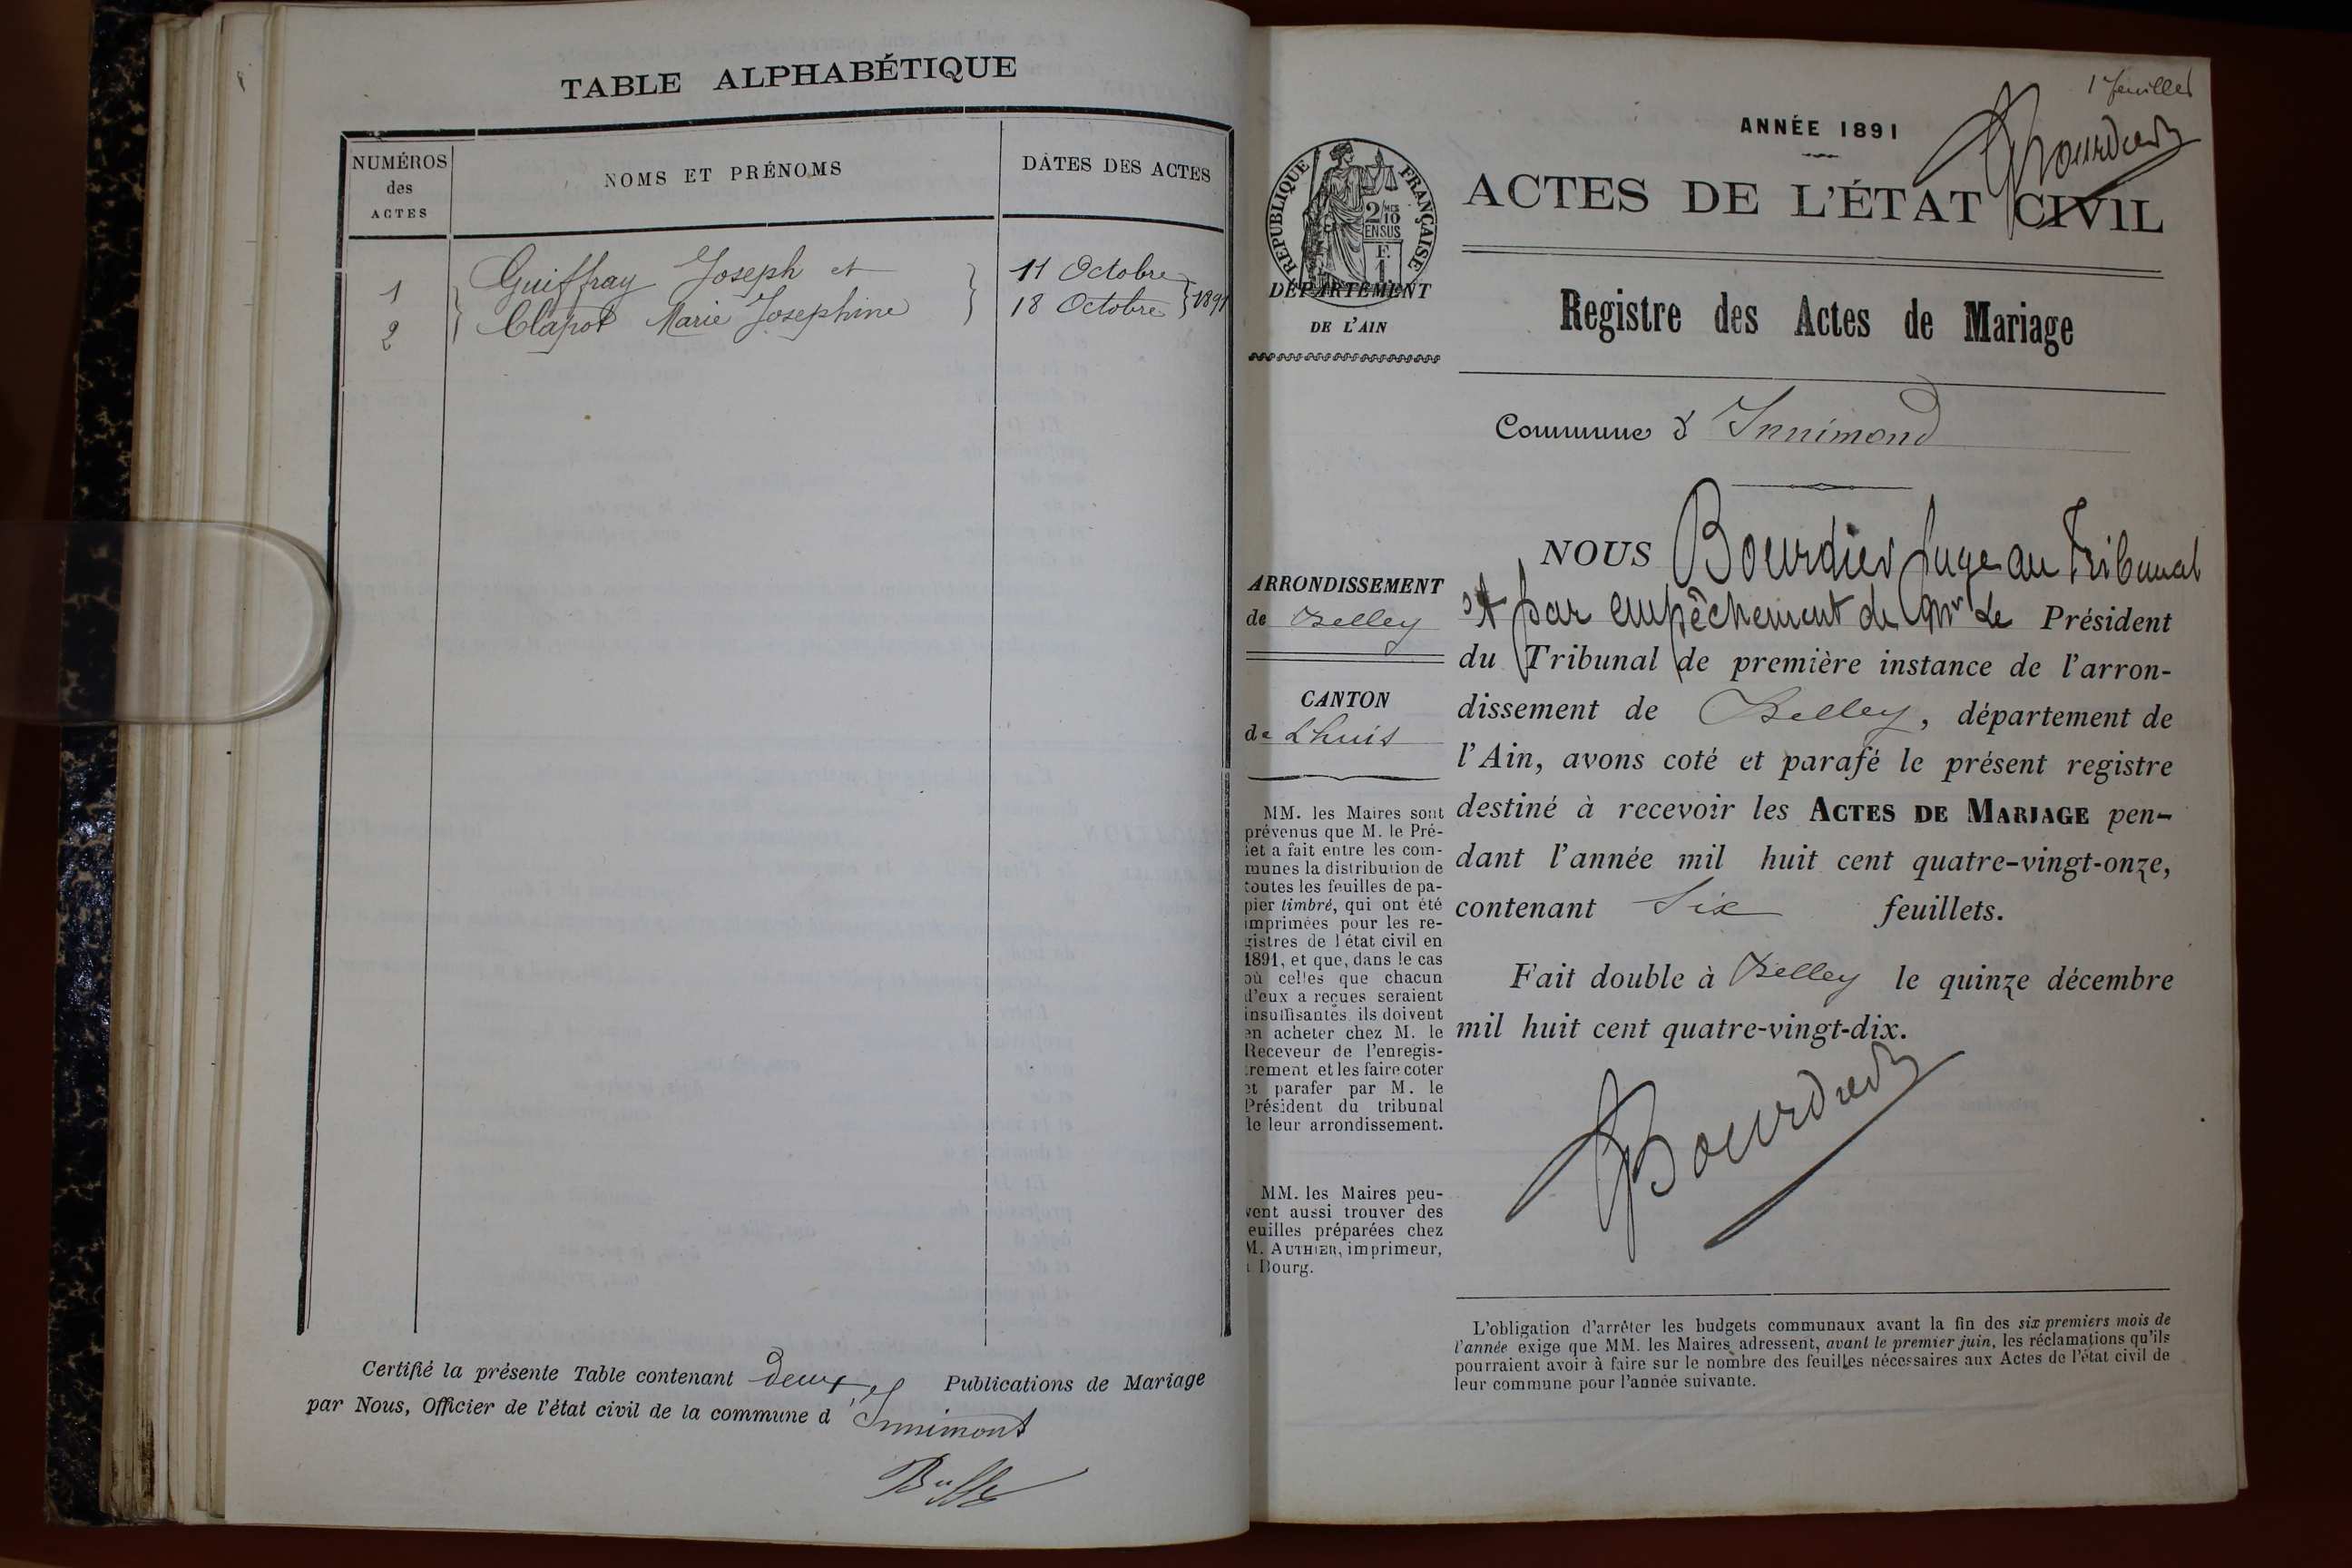 TABLE ALPHABÉTIQUE
NUMÉROS
des
ACTES
NOMS ET PRÉNOMS
DATES DES ACTES
1
2
Guiffray Joseph et
Clapot Marie Josephine
11 Octobre
18 Octobre
1891
Certifié la présente Table contenant deux Publications de Mariage
par Nous, Officier de l'état civil de la commune d'Innimont
1er feuillet
ANNÉE 1891
Bourdier
ACTES DE L'ÉTAT CIVIL
RÉPUBLIQUE FRANÇAISE
2/10
EN SUS
F.
1
DÉPARTEMENT
DE L'AIN
Registre des Actes de Mariage
Commune d'Innimond
ARRONDISSEMENT
de Belley
CANTON
de Lhuis
MM. les Maires sont
prévenus que M. le Pré-
fet a fait entre les com-
munes la distribution de
toutes les feuilles de pa-
pier timbré, qui ont été
imprimées pour les re-
gistres de l'état civil en
1891, et que, dans le cas
où celles que chacun
d'eux a reçues seraient
insuffisantes ils doivent
en acheter chez M. le
Receveur de l'enregis-
trement et les faire coter
et parafer par M. le
Président du tribunal
de leur arrondissement.
MM. les Maires peu-
vent aussi trouver des
feuilles préparées chez
M. AUTHIER, imprimeur,
à Bourg.
NOUS Bourdier Juge au Tribunal
et par empêchement de Mr Le Président
du Tribunal de première instance de l'arron-
dissement de Belley, département de
l'Ain, avons coté et parafé le présent registre
destiné à recevoir les ACTES DE MARIAGE pen-
dant l'année mil huit cent quatre-vingt-onze,
contenant Six feuillets.
Fait double à Belley le quinze décembre
mil huit cent quatre-vingt-dix.
Bourdier
L'obligation d'arrêter les budgets communaux avant la fin des six premiers mois de
l'année exige que MM. les Maires adressent, avant le premier juin, les réclamations qu'ils
pourraient avoir à faire sur le nombre des feuilles nécessaires aux Actes de l'état civil de
leur commune pour l'année suivante.